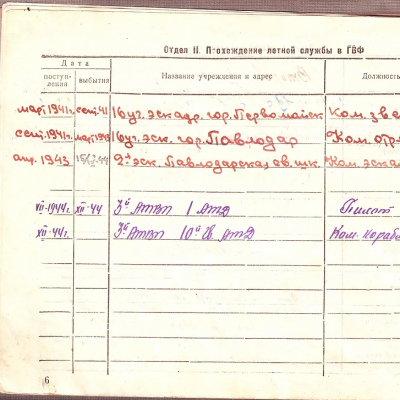 Отдел II. Прохождение летной службы в ГВФ
Дата
поступления
выбытия
Название учреждения и адрес
Должность
март 1941г. сент. 41 16 уч. эскадр. гор. Первомайск Ком. зве
сент. 1941г. март 1943 16 уч. эск. гор. Павлодар Ком. отр.
апр. 1943 2я эск. Павлодарская ав. шк. Ком. эска
VII-1944г. XII-44 3й АТПП 1 АТД Пилот
XII-44г. 3й АТПП 10й Гв. АТД Ком. корабл
6